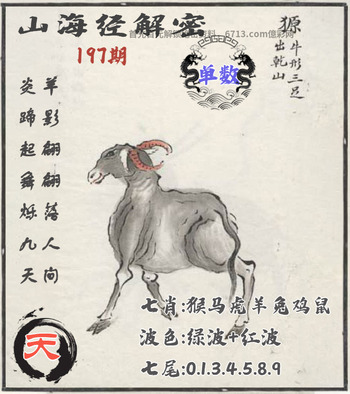 山海经解密
197期
6713.com
单数
豲牛形三足
出乾山
羊影翩翩落人间
炎蹄起舞烁九天
天
七肖:猴马虎羊兔鸡鼠
波色:绿波+红波
七尾:0.1.3.4.5.8.9